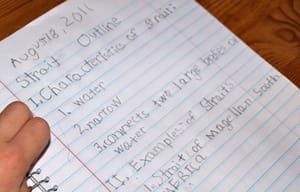 August 8, 2011
Strait Outline
I. Characteristics of Strait
1. water
2. narrow
3. connects two large bodies of
water
II. Examples of Straits
1. Strait of Magellan South